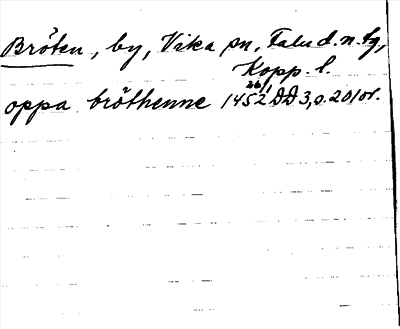 Bröten, by, Vika sn, Falu d. n. tg,
Kopp. l.
oppa bröthenne 1452 26/1 DD 3, s. 201 or.